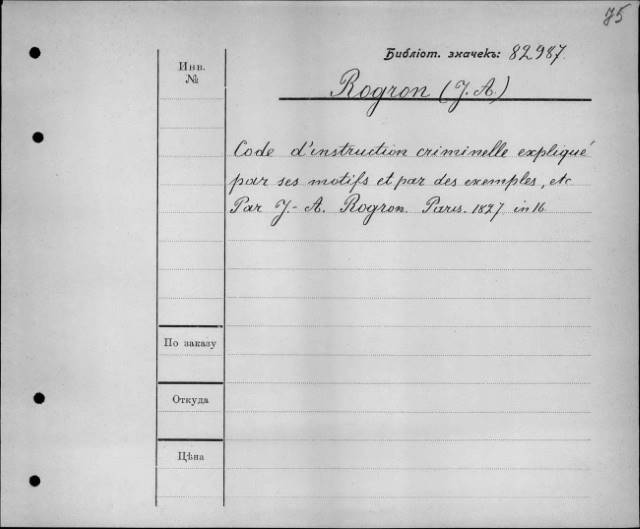 75
Библіот. значекъ: 82987.
Инв.
№
Rogron (J. A.)
Code d'instruction criminelle expliqué
par ses motifs et par des exemples, etc
Par J.- A. Rogron. Paris. 1827 in 16
По заказу
Откуда
Цѣна